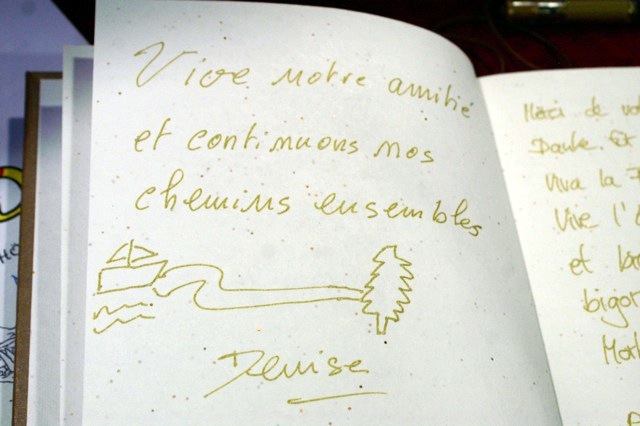 Vive notre amitié
et continuons nos
chemins ensembles
Denise
Merci de
Danke. Et
Viva la
Vive l'
et